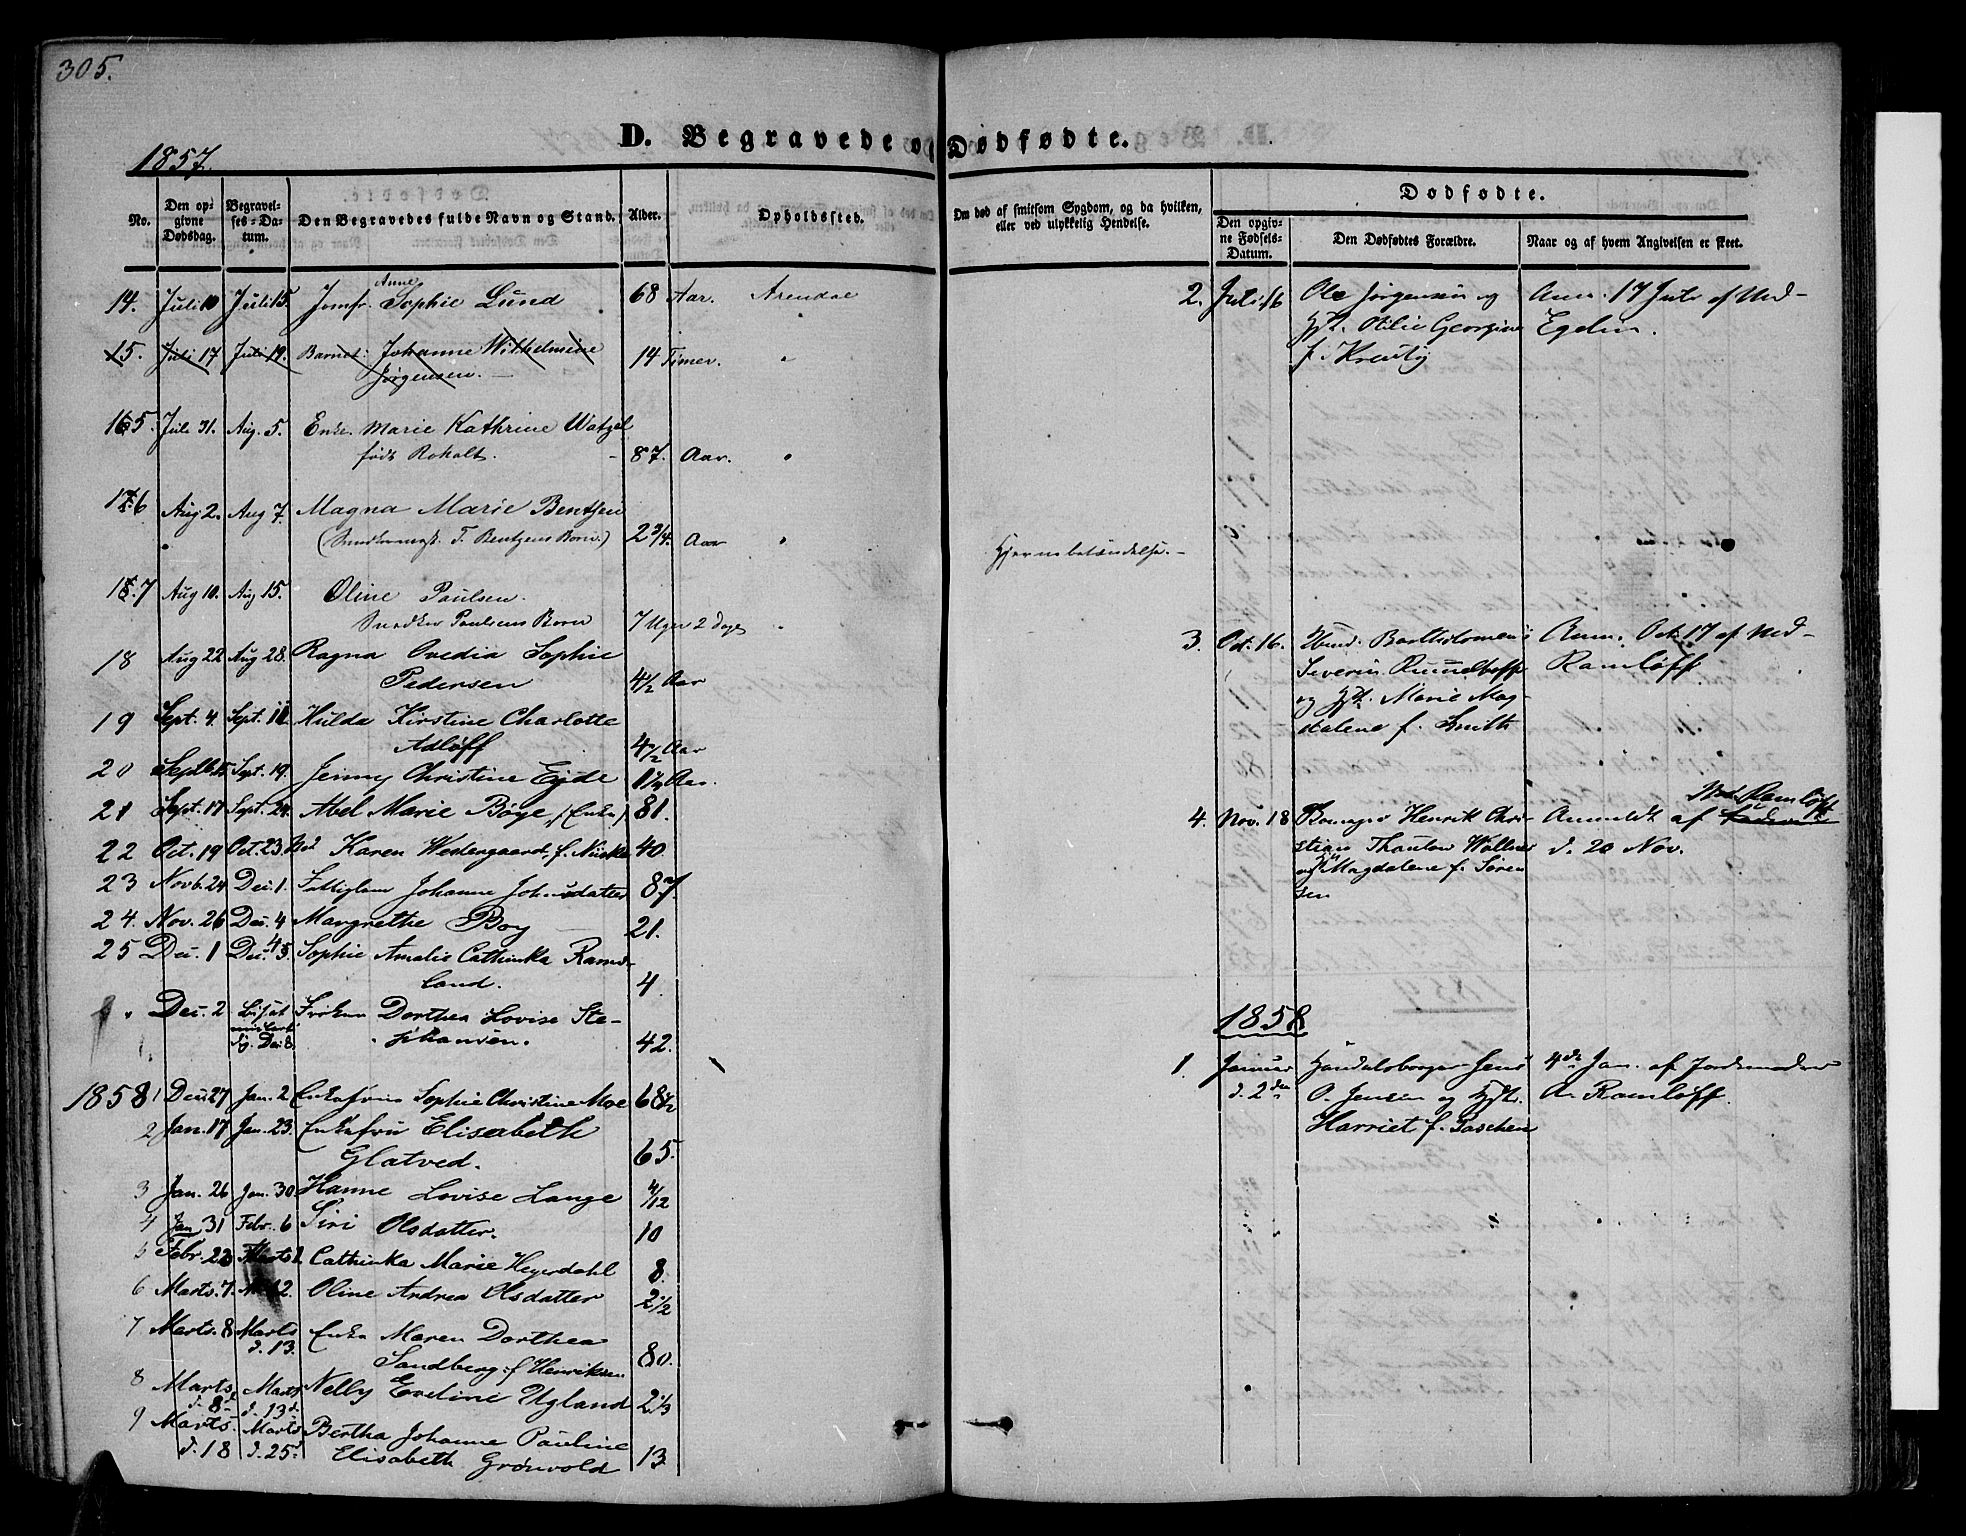 305.
D. Begravede og Dødfødte.
1857.
No.
Den op-
givne
Dødsdag.
Begravel-
ses-Da-
tum.
Den Begravedes fulde Navn og Stand.
Alder.
Opholdssted.
Om død af smitsom Sygdom, og da hvilken,
eller ved ulykkelig Hendelse.
Dødfødte.
Den opgiv-
ne Fødsels-
Datum.
Den Dødfødtes Forældre.
Naar og af hvem Angivelsen er skeet.
Anne
14. Juli 10 Juli 15. Jomfr. Sophie Lund 68 Aar. Arendal
15. Juli 17 Juli 19. Barnet: Johanne Wilhelmine 14 Timer. "
Jørgensen.
15. Juli 31. Aug. 5. Enke. Marie Kathrine Watzel
født Roholt. 87. Aar. "
16 Aug 2. Aug 7. Magna Marie Bentzen
( T. Bentzens Barn.) 2 3/4. Aar "
17 Aug 10. Aug 15. Oline Paulsen.
Snedker Paulsens Barn 7 Uger 2 Dage "
18 Aug 22 Aug 28. Ragna Ovedia Sophie
Pedersen 4 1/2 Aar
19 Sept. 4. Sept. 11 Hulda Kirstine Charlotte
Adløff 4 1/2 Aar
20 Septb. 15 Sept. 19. Jenny Christine Eyde 1 1/2 Aar
21 Sept. 17 Sept. 24. Abel Marie Bøye, (Enke) 81.
22 Oct. 19 Oct. 23. Karen Westergaard, f. 40.
23 Novb. 24 Dec. 1. Fattiglem Johanne Johnsdatter 87.
24. Nov. 26 Dec. 4 Margrethe Boy 21.
25 Dec. 1 Dec. 5. Sophie Amalie Cathinka Rams-
land. 4.
" Dec. 2 Bisat Frøken Dorthea Lovise Ste-
Dec. 8. phansen. 42.
1858 1 Dec 27 Jan. 2 Enkefru Sophie Christine Moe 68 1/2
2 Jan. 17 Jan. 23. Enkefru Elisabeth
Glatved. 65.
3 Jan. 26 Jan. 30. Hanne Lovise Lange 4/12
4 Jan 31 Febr. 6 Siri Olsdatter. 10
5 Febr. 23 Marts 2 Cathinka Marie Heyerdahl 8.
6 Marts. 7. M. 12. Oline Andrea Olsdatter 2 1/2
7 Marts. 8 Marts Enke Maren Dorthea
d. 13. Sandberg f Henriksen 80.
8 Marts Marts Nelly Eveline Ugland 2 1/3
d. 8 d. 13
9 Marts. Marts Bertha Johanne Pauline
d. 18 d. 25 Elisabeth Grønvold 13.
Hjernebetændelse.
2. Juli 16 Ole Jørgensen og Anm. 17 Juli af Md-
Hst. Otilie Georgine Egelin.
f.
3. Oct. 16. Bartholomeus Anm. Oct. 17 af Md-
Severin Ramløff
og Hst. Marie Mag-
dalene f. Smith
Md. Ramløff
4. Nov. 18 Henrik Chri- Anmeldt af Faderen
stian Thaulow d. 20 Nov.
og Hst Magdalene f. Søren
sen
1858
1. Januar Handelsborger Jens 4de Jan. af Jordemoder
d. 2den O. Jensen og Hst. A. Ramløff.
Harriet f. Paschen